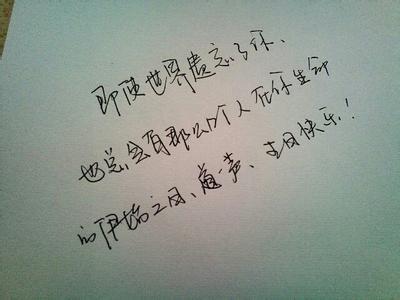 即使世界遗忘了你、
也总会有那么个人在你生命
的伊始之日、道一声、生日快乐！